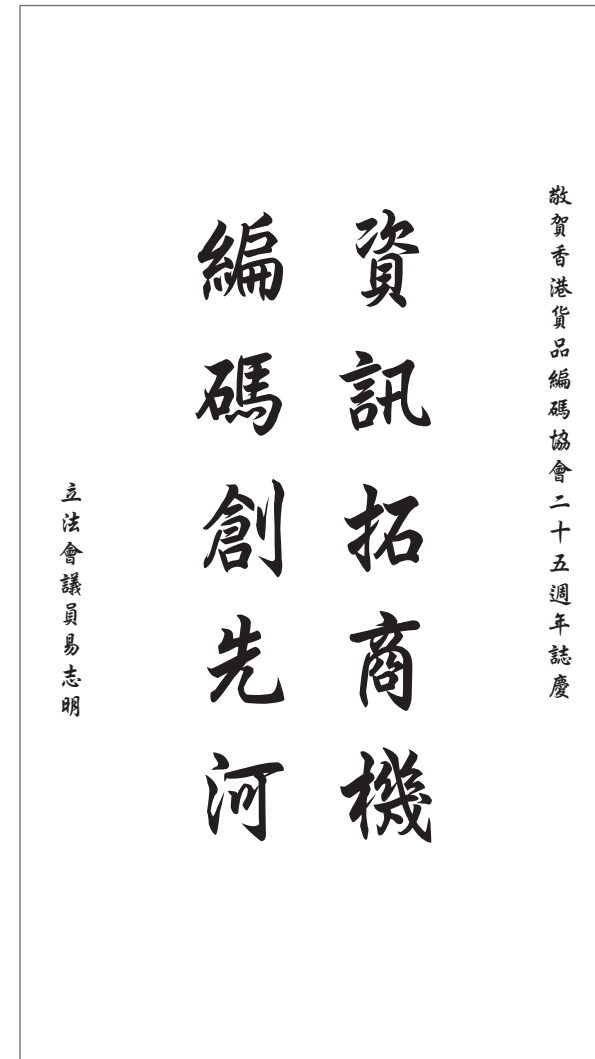 敬賀香港貨品編碼協會二十五週年誌慶
資訊拓商機
編碼創先河
立法會議員易志明